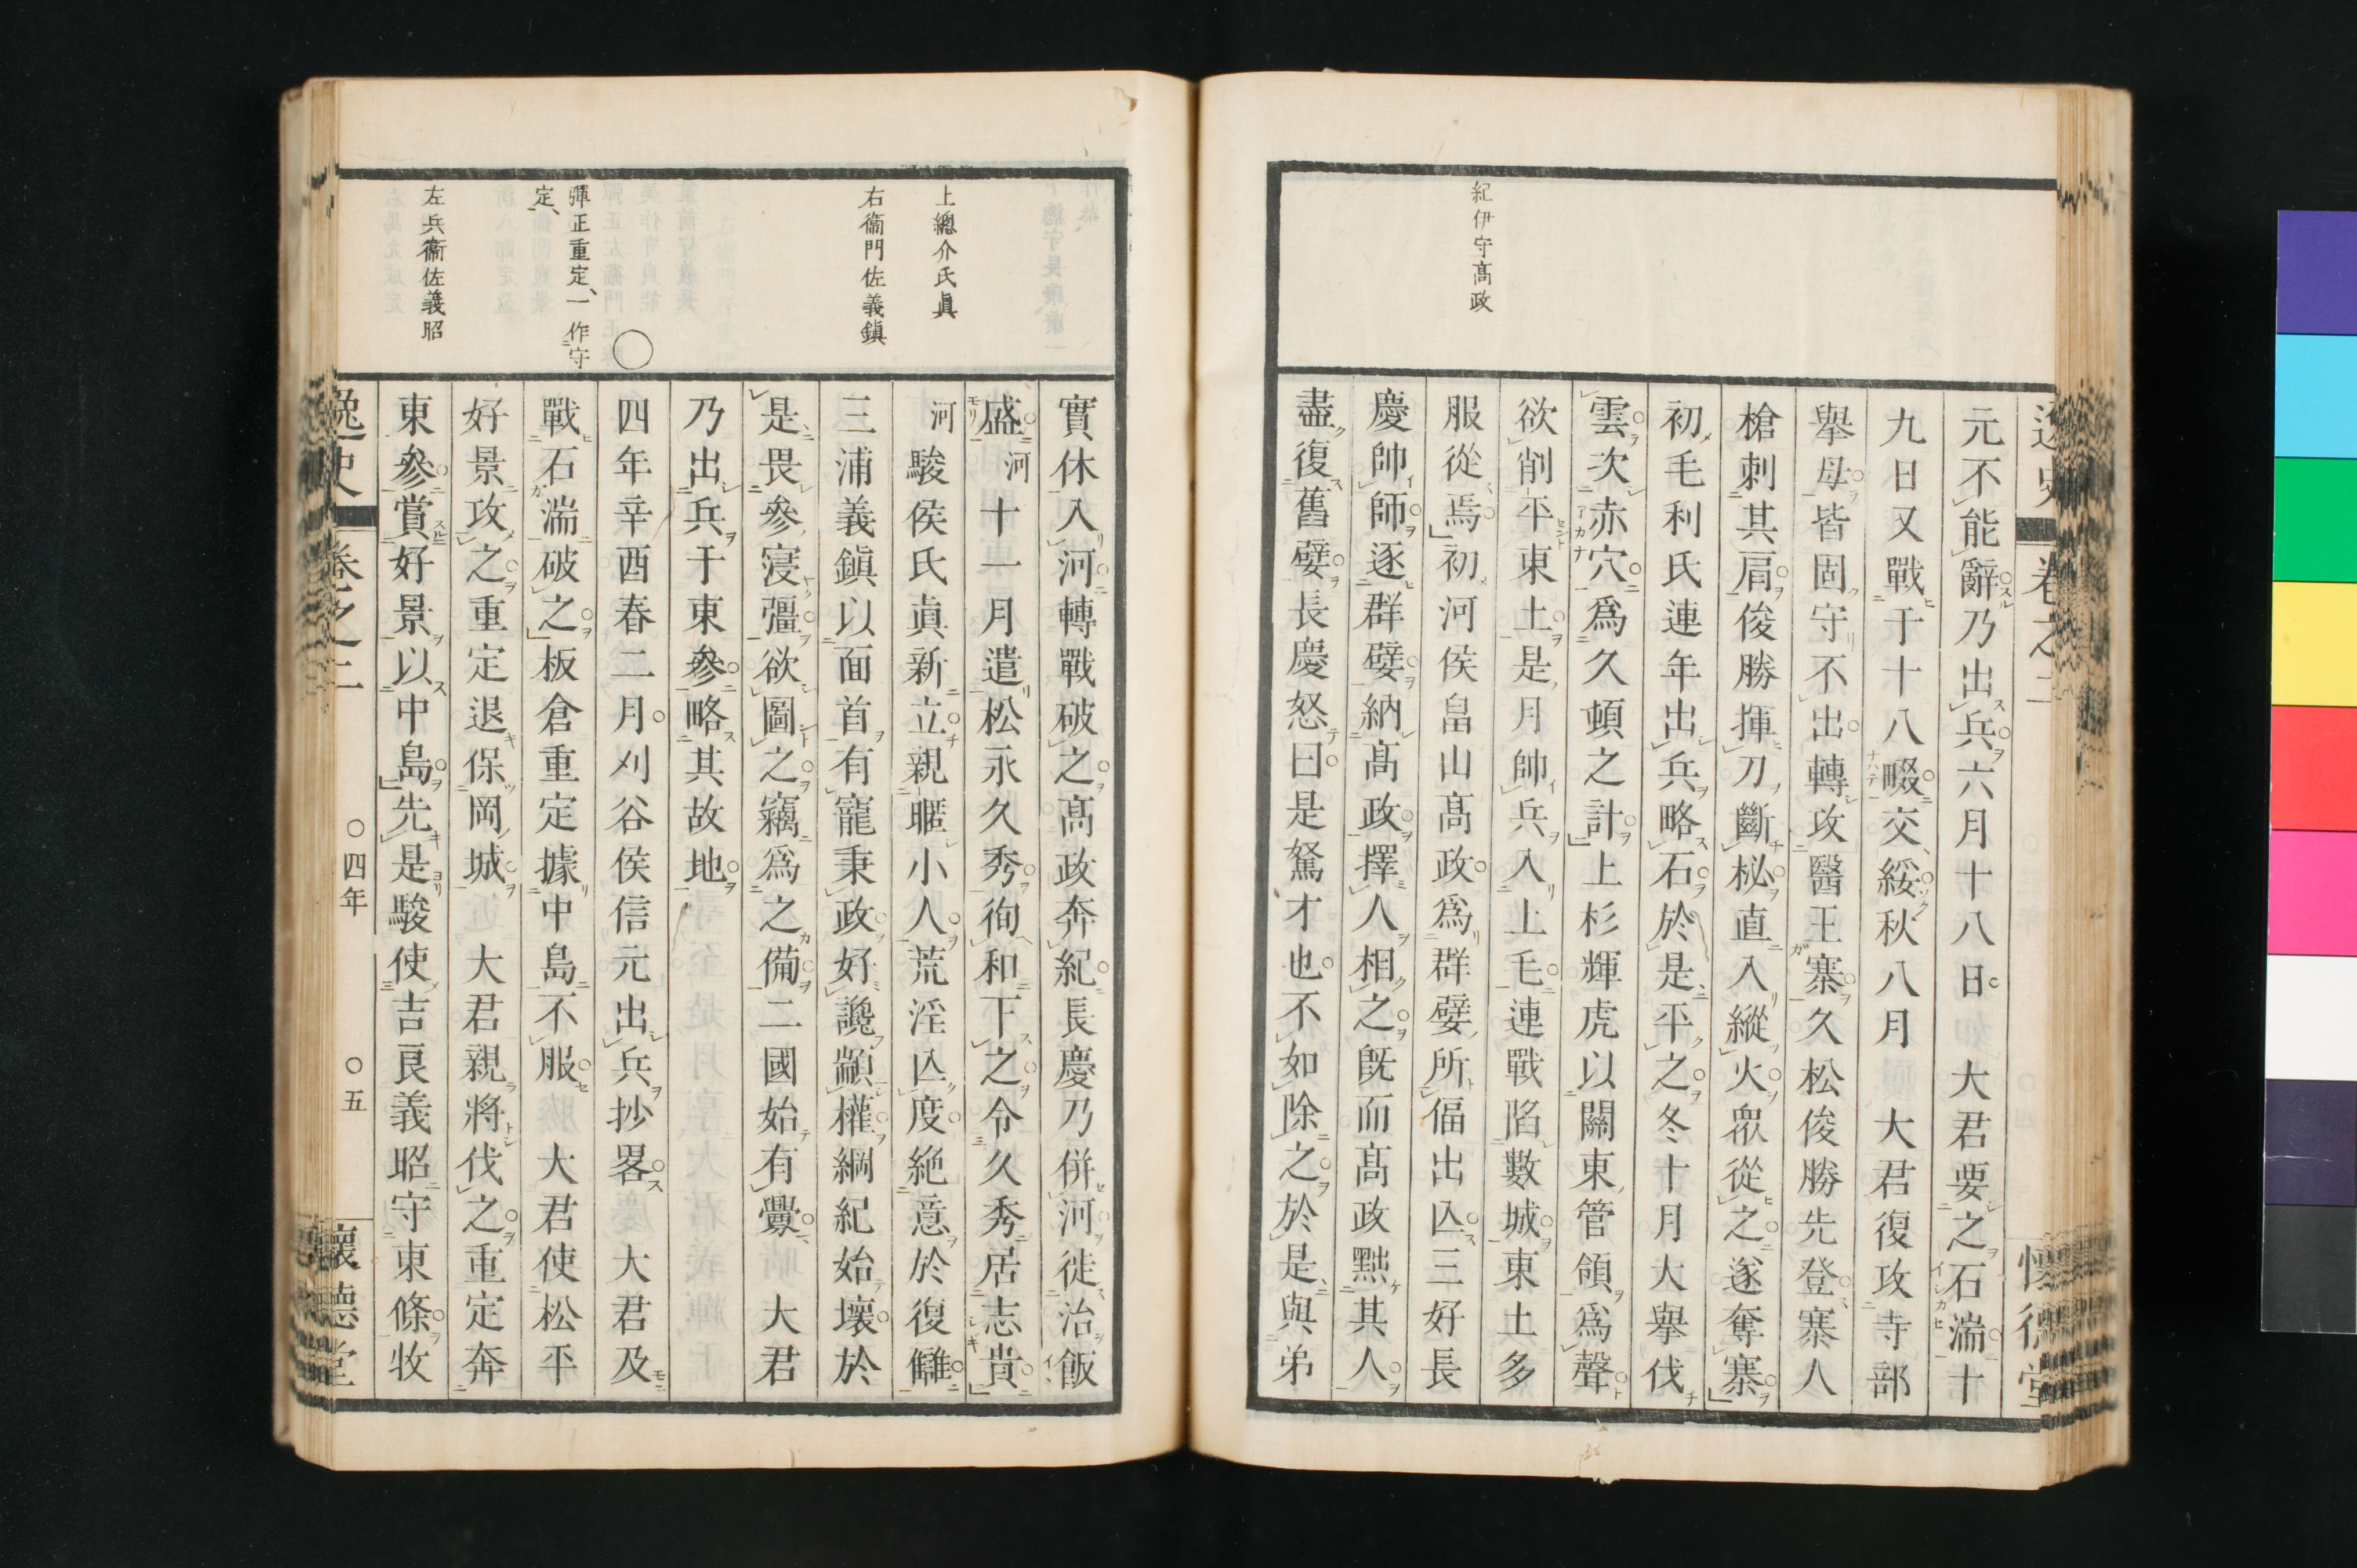 逸史 卷之二 懷德堂
紀伊守髙政
元不能辭乃出兵六月十八日 大君要之石湍十
九日又戰于十八畷交綏秋八月 大君復攻寺部
擧母皆固守不出轉攻醫王寨久松俊勝先登寨人
槍刺其肩俊勝揮刀斷柲直入縱火衆從之遂奪寨
初毛利氏連年出兵略石於是平之冬十月大擧伐
雲次赤穴爲久頓之計上杉輝虎以關東管領爲聲
欲削平東土是月帥兵入上毛連戰陷數城東土多
服從焉初河侯畠山髙政爲群嬖所偪出亾三好長
慶帥師逐群嬖納髙政擇人相之旣而髙政黜其人
盡復舊嬖長慶怒曰是駑才也不如除之於是與弟
上總介氏眞
右衞門佐義鎭
彈正重定、一作守
定、
左兵衞佐義昭
實休入河轉戰破之髙政奔紀長慶乃併河徙治飯
盛河十一月遣松永久秀徇和下之令久秀居志貴
河駿侯氏眞新立親暱小人荒淫亾度絶意於復讎
三浦義鎭以面首有寵秉政好讒顓權綱紀始壞於
是畏參寖彊欲圖之竊爲之備二國始有釁 大君
乃出兵于東參略其故地
四年辛酉春二月刈谷侯信元出兵抄畧 大君及
戰石湍破之板倉重定據中島不服 大君使松平
好景攻之重定退保岡城 大君親將伐之重定奔
東參賞好景以中島先是駿使吉良義昭守東條牧
逸史 卷之二 〇四年 〇五 懷德堂